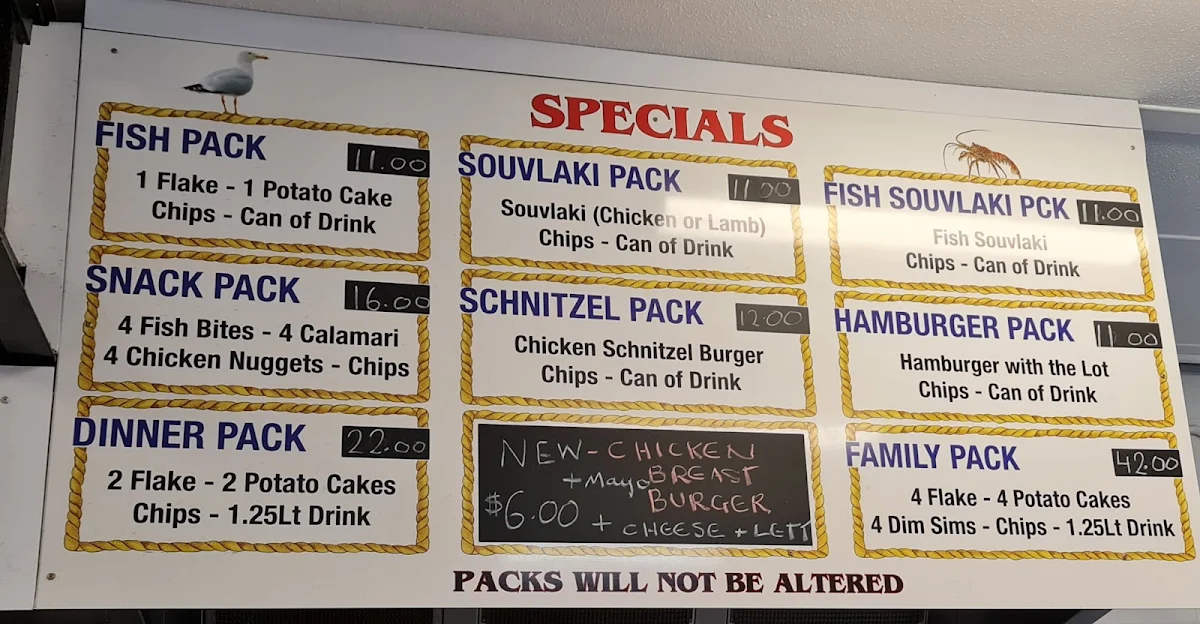 SPECIALS
FISH PACK 11.00
1 Flake - 1 Potato Cake
Chips - Can of Drink
SNACK PACK 16.00
4 Fish Bites - 4 Calamari
4 Chicken Nuggets - Chips
DINNER PACK 22.00
2 Flake - 2 Potato Cakes
Chips - 1.25Lt Drink
SOUVLAKI PACK 11.00
Souvlaki (Chicken or Lamb)
Chips - Can of Drink
SCHNITZEL PACK 12.00
Chicken Schnitzel Burger
Chips - Can of Drink
NEW - CHICKEN
+ Mayo BREAST
$6.00 BURGER
+ CHEESE + LETT
FISH SOUVLAKI PCK 11.00
Fish Souvlaki
Chips - Can of Drink
HAMBURGER PACK 11.00
Hamburger with the Lot
Chips - Can of Drink
FAMILY PACK 42.00
4 Flake - 4 Potato Cakes
4 Dim Sims - Chips - 1.25Lt Drink
PACKS WILL NOT BE ALTERED